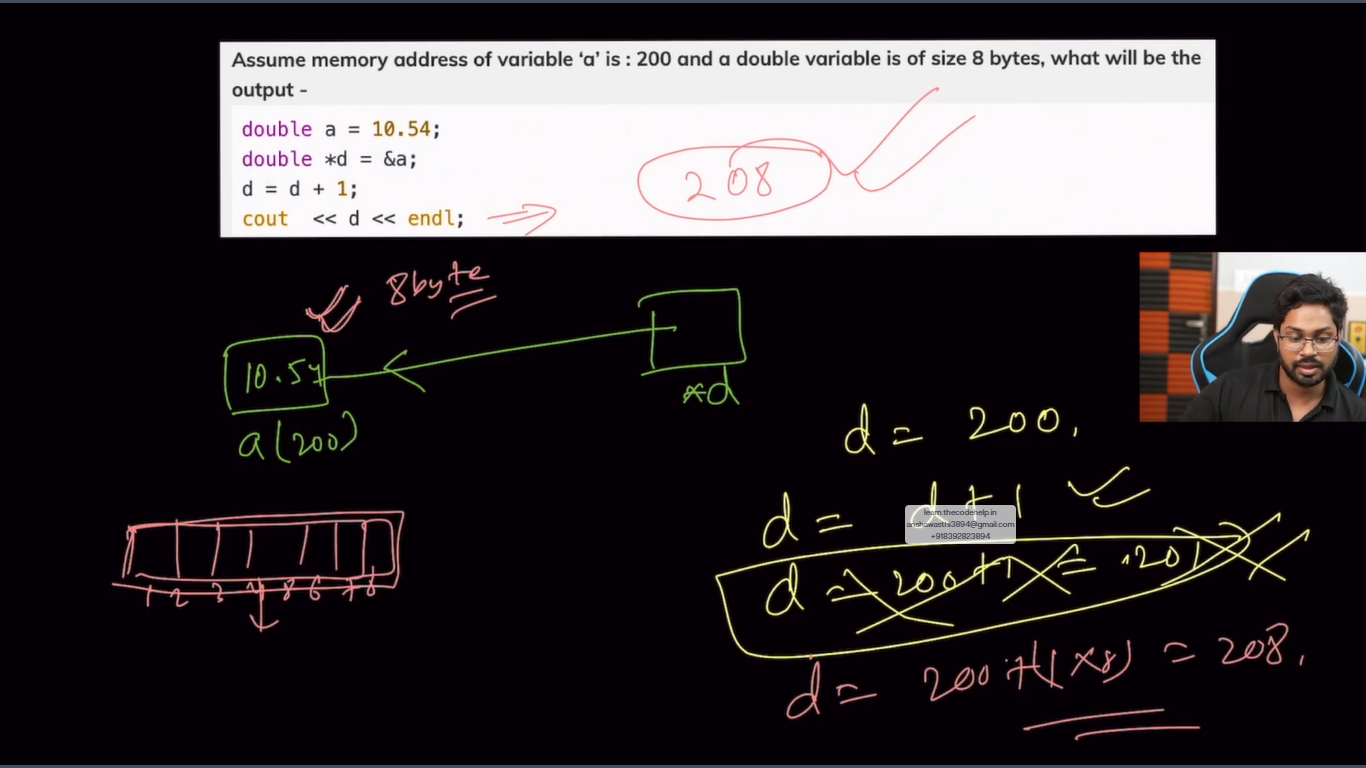 Assume memory address of variable ‘a’ is : 200 and a double variable is of size 8 bytes, what will be the
output -
double a = 10.54;
double *d = &a;
d = d + 1;
cout << d << endl;
208
8byte
10.54
a(200)
*d
d = 200.
d = d + 1
learn.thecodehelp.in
anshawasthi3894@gmail.com
+918392823894
d = 200 + 1 = 201
1 2 3 4 8 6 7 8
d = 200 + (1 × 8) = 208.